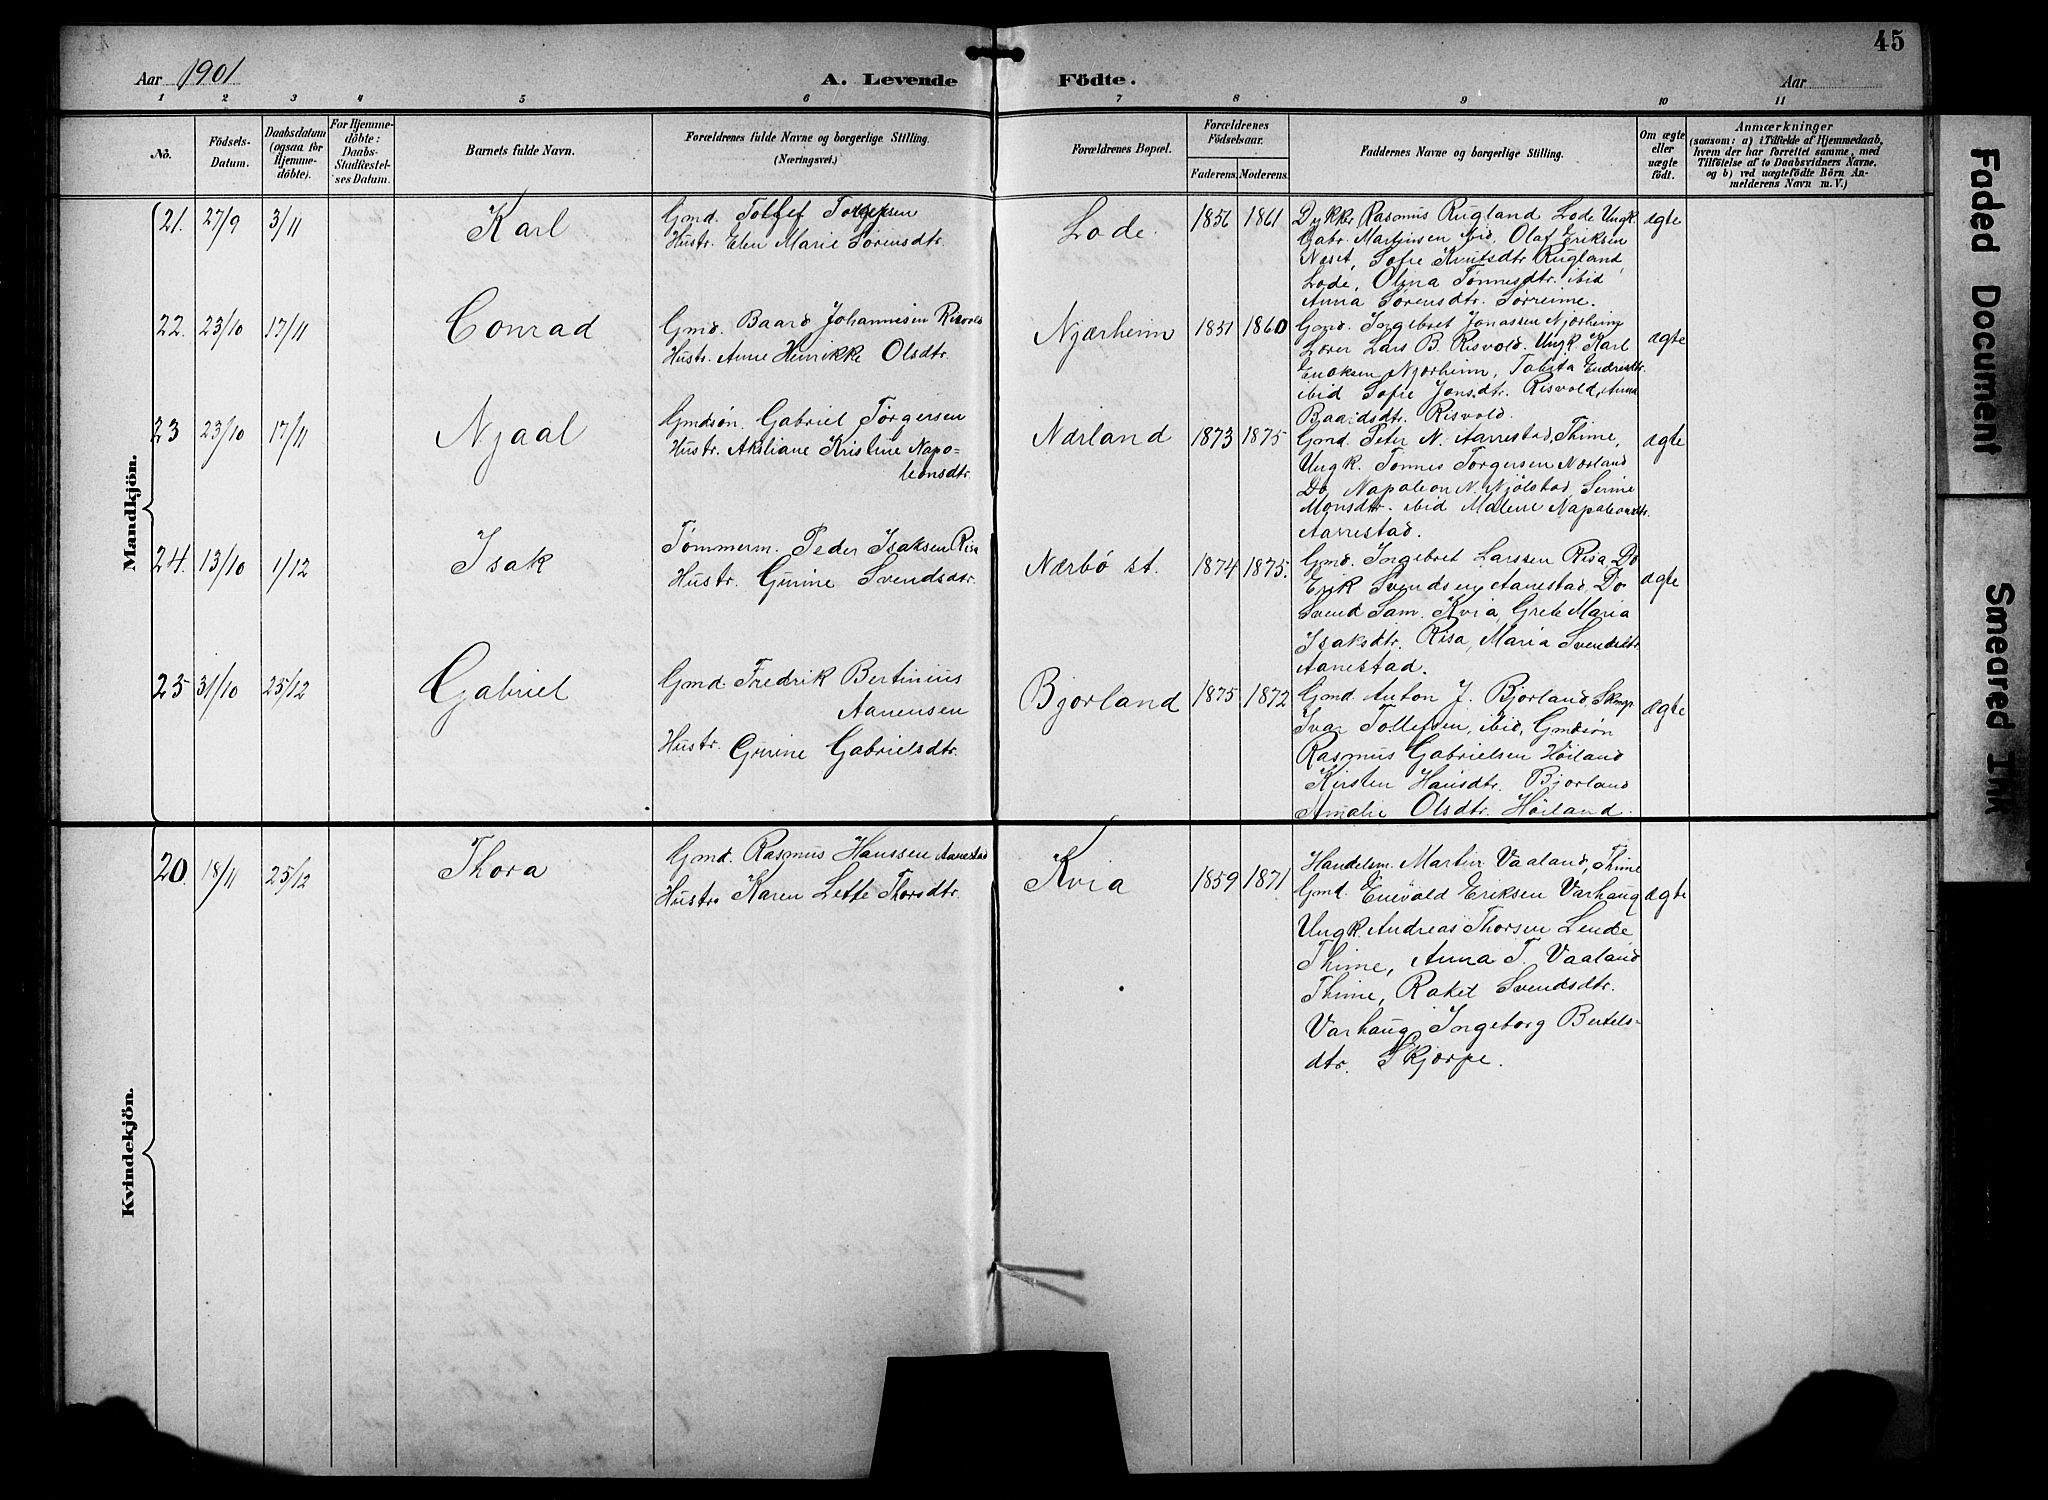 45
Aar 1901
A. Levende Födte.
Aar
1 2 3 4 5 6 7 8 9 10 11
No.
Födsels-Datum.
Daabsdatum (ogsaa for Hjemme-döbte).
For Hjemme-döbte: Daabs-Stadfæstel-ses Datum.
Barnets fulde Navn.
Forældrenes fulde Navne og borgerlige Stilling. (Næringsvei.)
Forældrenes Bopæl.
Forældrenes Födselsaar.
Faderens. Moderens.
Faddernes Navne og borgerlige Stilling.
Om ægte eller uægte födt.
Anmærkninger
(saasom: a) i Tilfælde af Hjemmedaab,
hvem der har forrettet samme, med
Tilföielse af to Daabsvidners Navne,
og b) ved uægtefödte Börn An-
melderens Navn m. V.)
Mandkjön.
21. 27/9 3/11 Karl
Gmd. Tollef Torgersen
Hustr. Elen Marie Sørensdtr.
Lode. 1856 1861
Dykker Rasmus Rugland Lode Ungk.
Gabr. Martinsen ibid. Olaf Eriksen
Næset, Sofie Knutsdtr Rugland,
Lode, Olina Tønnesdtr. ibid
Anna Sørensdtr. Sørreime.
ægte
22. 23/10 17/11 Conrad
Gmd. Baard Johannesen Risvold
Hustr. Anne Henrikke Olsdtr.
Njærheim 1851 1860
Gmd. Ingebret Jonassen Njærheim
Lærer Lars B. Risvold. Ungk. Karl
Enoksen Njærheim, Tabita Endresdtr.
ibid Sofie Jonsdtr. Risvold, Anna
Baardsdtr. Risvold.
ægte
23 23/10 17/11 Njaal
Gmdsøn. Gabriel Torgersen
Hustr. Akseliane Kristine Napo-
leonsdtr.
Nærland 1873 1875
Gmd. Peter N. Aarrestad, Thime,
Ungk. Tønnes Torgersen Nærland
Do. Napoleon N. Njølstad, Serine
Monsdtr. ibid Malene Napoleonsdtr.
Aarrestad.
ægte
24. 13/10 1/12 Isak
Tømmerm. Peder Isaksen Risa
Hustr. Gurine Svendsdtr.
Nærbö st. 1874 1875.
Gmd. Ingebret Larssen Risa, Do
Erik Svendsen Aanestad, Do
Svend Sam. Kvia, Grete Maria
Isaksdtr. Risa, Maria Svendsdtr.
Aanestad.
ægte
25 31/10 25/12 Gabriel
Gmd. Fredrik Bertinius
Aanensen
Hustr. Gurine Gabrielsdtr.
Bjorland 1875. 1872
Gmd Anton J. Bjorland,
Ivar Tollefsen, ibid, Gmdsøn
Rasmus Gabrielsen Höiland
Kirsten Hansdtr. Bjorland
Amalie Olsdtr. Höiland.
ægte
Kvindekjön.
20. 18/11 25/12 Thora
Gmd. Rasmus Hanssen Aanestad
Hustr. Karen Lette Thorsdtr.
Kvia 1859 1871
Handelsm. Martin Vaaland, Thime
Gmd. Enevald Eriksen Varhaug
Ungk. Andreas Thorsen Lende,
Thime, Anna T. Vaaland
Thime, Rakel Svendsdtr.
Varhaug Ingeborg Bertels-
dtr. Skjærpe.
ægte
Faded Document
Smeared Ink